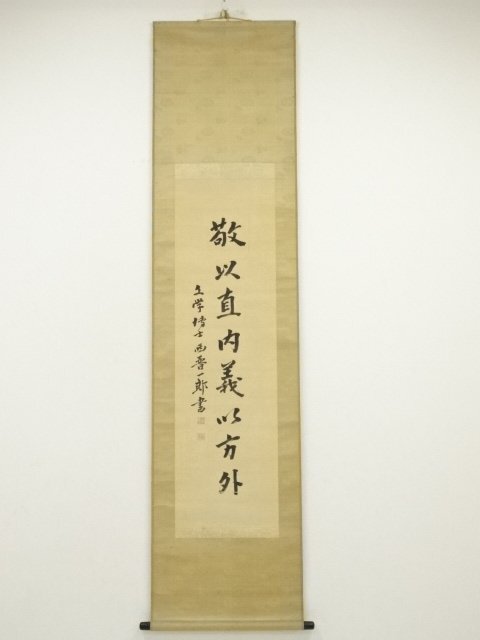 敬以直内義以方外
文学博士西晋一郎書